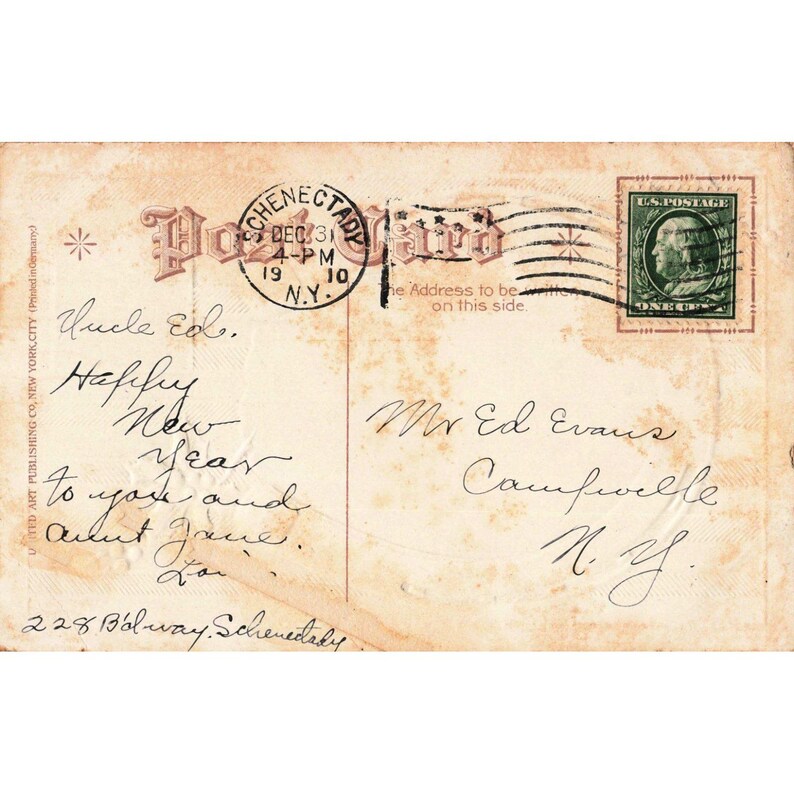 Post Card
SCHENECTADY
DEC 31
4-PM
19 10
N.Y.
U.S. POSTAGE
ONE CENT
The Address to be written
on this side.
UNITED ART PUBLISHING CO, NEW YORK.CITY (Printed in Germany.)
Uncle Ed.
Happy
New
Year
to you and
aunt Jane.
228 B'dway. Schenectady
Mr Ed Evans
Campville
N. Y.